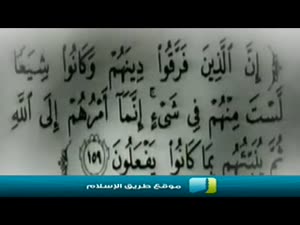 ﴿ إِنَّ الَّذِينَ فَرَّقُوا دِينَهُمْ وَكَانُوا شِيَعًا
لَّسْتَ مِنْهُمْ فِي شَيْءٍ ۚ إِنَّمَا أَمْرُهُمْ إِلَى اللَّهِ
ثُمَّ يُنَبِّئُهُم بِمَا كَانُوا يَفْعَلُونَ ١٥٩ ﴾
موقع طريق الإسلام